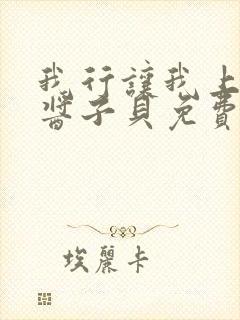 我行讓我上
醬子貝免費
埃麗卡